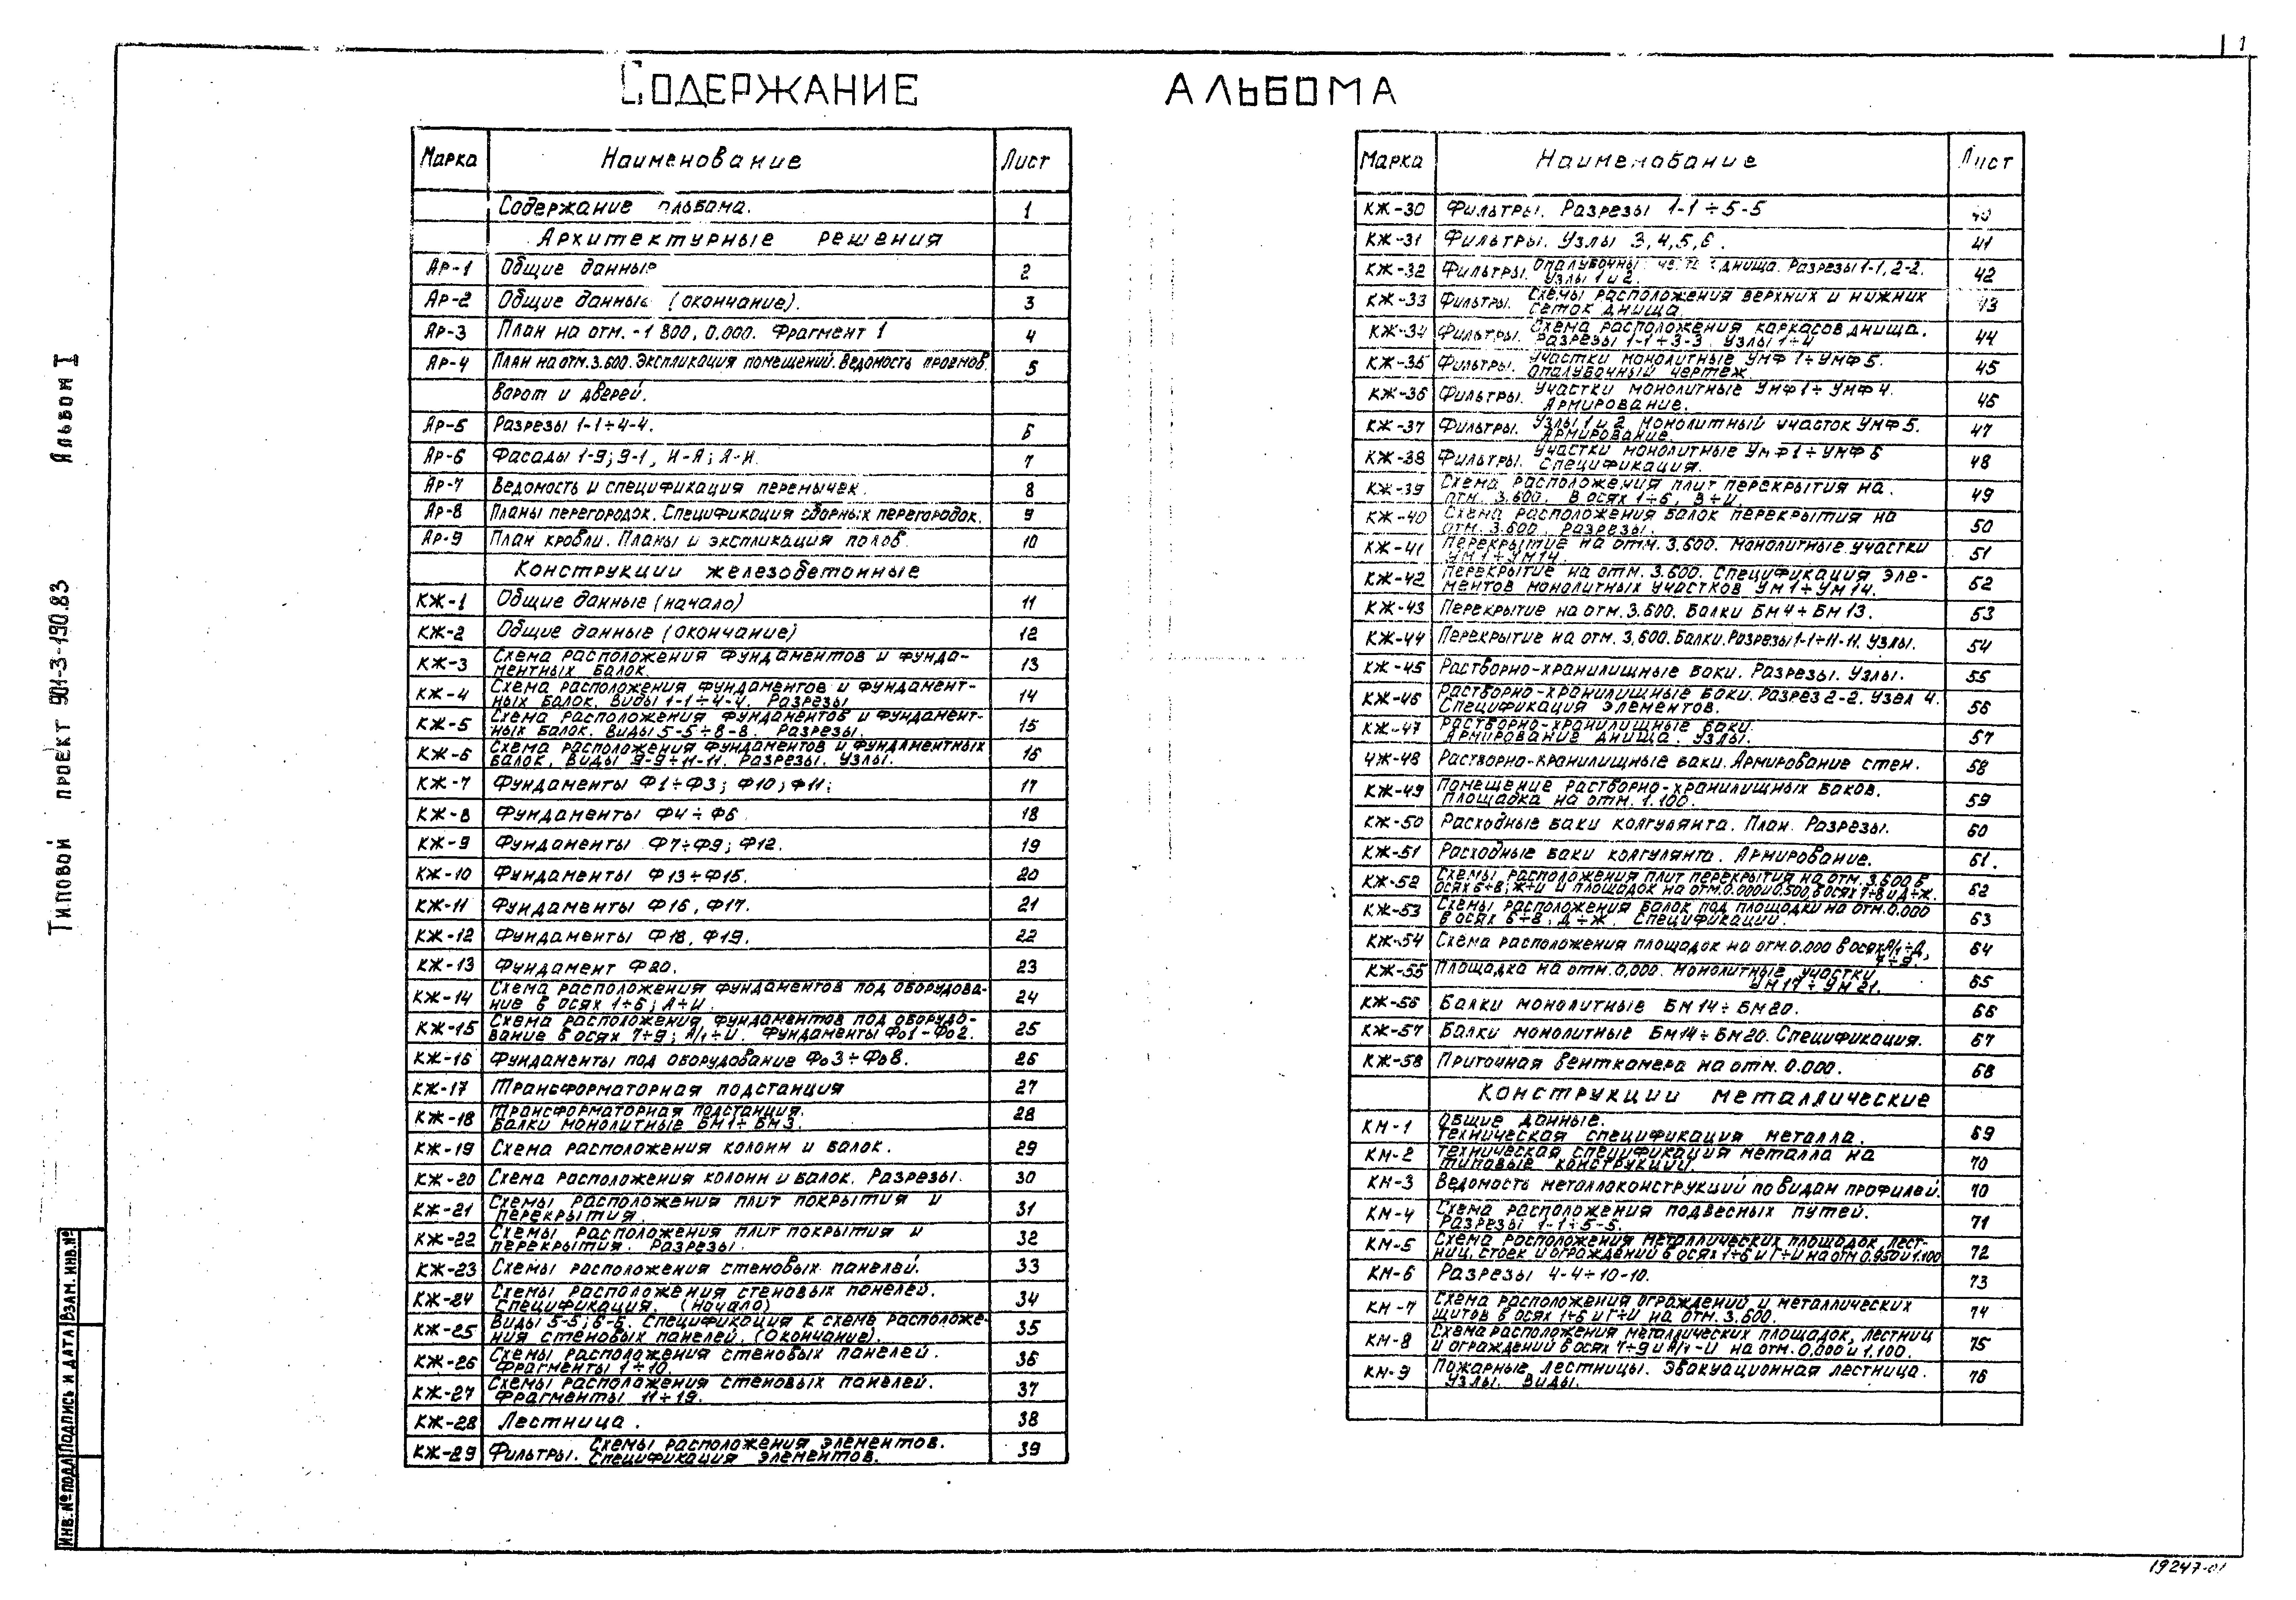 1
СОДЕРЖАНИЕ АЛЬБОМА
Марка Наименование Лист
Содержание альбома. 1
Архитектурные решения
АР-1 Общие данные 2
АР-2 Общие данные (окончание). 3
АР-3 План на отм. -1 800, 0.000. Фрагмент 1 4
АР-4 План на отм. 3.600. Экспликация помещений. Ведомость проемов 5
ворот и дверей.
АР-5 Разрезы 1-1÷4-4. 6
АР-6 Фасады 1-9; 9-1, И-А; А-И. 7
АР-7 Ведомость и спецификация перемычек. 8
АР-8 Планы перегородок. Спецификация сборных перегородок. 9
АР-9 План кровли. Планы и экспликация полов 10
Конструкции железобетонные
КЖ-1 Общие данные (начало) 11
КЖ-2 Общие данные (окончание) 12
КЖ-3 Схема расположения фундаментов и фунда-
ментных балок. 13
КЖ-4 Схема расположения фундаментов и фундамент-
ных балок. Виды 1-1÷4-4. Разрезы 14
КЖ-5 Схема расположения фундаментов и фундамент-
ных балок. Виды 5-5÷8-8. Разрезы. 15
КЖ-6 Схема расположения фундаментов и фундаментных
балок. Виды 9-9÷11-11. Разрезы. Узлы. 16
КЖ-7 Фундаменты Ф1÷Ф3; Ф10; Ф11; 17
КЖ-8 Фундаменты Ф4÷Ф6 18
КЖ-9 Фундаменты Ф7÷Ф9; Ф12. 19
КЖ-10 Фундаменты Ф13÷Ф15. 20
КЖ-11 Фундаменты Ф16, Ф17. 21
КЖ-12 Фундаменты Ф18, Ф19. 22
КЖ-13 Фундамент Ф20. 23
КЖ-14 Схема расположения фундаментов под оборудова-
ние в осях 1÷6; А÷И. 24
КЖ-15 Схема расположения фундаментов под оборудо-
вание в осях 7÷9; А/1÷И. Фундаменты Фо1-Фо2. 25
КЖ-16 Фундаменты под оборудование Фо3÷Фо8. 26
КЖ-17 Трансформаторная подстанция 27
КЖ-18 Трансформаторная подстанция.
Балки монолитные БМ1÷БМ3. 28
КЖ-19 Схема расположения колонн и балок. 29
КЖ-20 Схема расположения колонн и балок. Разрезы. 30
КЖ-21 Схемы расположения плит покрытия и
перекрытия. 31
КЖ-22 Схемы расположения плит покрытия и
перекрытия. Разрезы. 32
КЖ-23 Схемы расположения стеновых панелей. 33
КЖ-24 Схемы расположения стеновых панелей.
Спецификация. (Начало) 34
КЖ-25 Виды 5-5; 6-6. Спецификация к схеме расположе-
ния стеновых панелей. (Окончание). 35
КЖ-26 Схемы расположения стеновых панелей.
Фрагменты 1÷10. 36
КЖ-27 Схемы расположения стеновых панелей.
Фрагменты 11÷19. 37
КЖ-28 Лестница. 38
КЖ-29 Фильтры. Схемы расположения элементов.
Спецификация элементов. 39
Марка Наименование Лист
КЖ-30 Фильтры. Разрезы 1-1÷5-5 40
КЖ-31 Фильтры. Узлы 3,4,5,6. 41
КЖ-32 Фильтры. днища. Разрезы 1-1, 2-2.
Узлы 1 и 2. 42
КЖ-33 Фильтры. Схемы расположения верхних и нижних
сеток днища. 43
КЖ-34 Фильтры. Схема расположения каркасов днища.
Разрезы 1-1÷3-3. Узлы 1÷4 44
КЖ-35 Фильтры. Участки монолитные УМФ1÷УМФ5.
Опалубочный чертеж. 45
КЖ-36 Фильтры. Участки монолитные УМФ1÷УМФ4.
Армирование. 46
КЖ-37 Фильтры. Узлы 1 и 2. Монолитный участок УМФ5.
Армирование. 47
КЖ-38 Фильтры. Участки монолитные УМФ1÷УМФ5
Спецификация. 48
КЖ-39 Схема расположения плит перекрытия на
отм. 3.600. В осях 1÷6, В÷И. 49
КЖ-40 Схема расположения балок перекрытия на
отм. 3.600. Разрезы. 50
КЖ-41 Перекрытие на отм. 3.600. Монолитные участки
УМ1÷УМ14. 51
КЖ-42 Перекрытие на отм. 3.600. Спецификация эле-
ментов монолитных участков УМ1÷УМ14. 52
КЖ-43 Перекрытие на отм. 3.600. Балки БМ4÷БМ13. 53
КЖ-44 Перекрытие на отм. 3.600. Балки. Разрезы 1-1÷11-11. Узлы. 54
КЖ-45 Растворно-хранилищные баки. Разрезы. Узлы. 55
КЖ-46 Растворно-хранилищные баки. Разрез 2-2. Узел 4.
Спецификация элементов. 56
КЖ-47 Растворно-хранилищные баки.
Армирование днища. Узлы. 57
ЧЖ-48 Растворно-хранилищные баки. Армирование стен. 58
КЖ-49 Помещение растворно-хранилищных баков.
Площадка на отм. 1.100. 59
КЖ-50 Расходные баки коагулянта. План. Разрезы. 60
КЖ-51 Расходные баки коагулянта. Армирование. 61.
КЖ-52 Схемы расположения плит перекрытия на отм. 3.600 в
осях 6÷8; Ж÷И и площадок на отм. 0.000 и 0.500 в осях 7÷8 и Д÷Ж. 62
КЖ-53 Схемы расположения балок под площадки на отм. 0.000
в осях 6÷8, Д÷Ж. Спецификации. 63
КЖ-54 Схема расположения площадок на отм. 0.000 в осях А/1÷Д,
7÷9. 64
КЖ-55 Площадка на отм. 0.000. Монолитные участки
УМ17÷УМ21. 65
КЖ-56 Балки монолитные БМ14÷БМ20. 66
КЖ-57 Балки монолитные БМ14÷БМ20. Спецификация. 67
КЖ-58 Приточная венткамера на отм. 0.000. 68
Конструкции металлические
КМ-1 Общие данные.
Техническая спецификация металла. 69
КМ-2 Техническая спецификация металла на
типовые конструкции. 70
КМ-3 Ведомость металлоконструкций по видам профилей. 70
КМ-4 Схема расположения подвесных путей.
Разрезы 1-1÷5-5. 71
КМ-5 Схема расположения металлических площадок, лест-
ниц, стоек и ограждений в осях 1÷6 и Г÷И на отм 0.950 и 1.100 72
КМ-6 Разрезы 4-4÷10-10. 73
КМ-7 Схема расположения ограждений и металлических
щитов в осях 1÷6 и Г÷И на отм. 3.600. 74
КМ-8 Схема расположения металлических площадок, лестниц
и ограждений в осях 7÷9 и А/1-И на отм. 0.000 и 1.100. 75
КМ-9 Пожарные лестницы. Эвакуационная лестница.
Узлы. Виды. 76
Типовой проект 901-3-190.83 Альбом I
Инв. № подл. Подпись и дата Взам. инв. №
19247-01